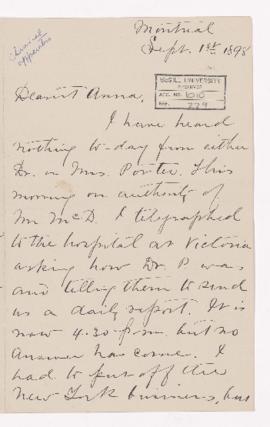 Montreal
Sept. 1st 1898
chemical
apparatus
McGILL UNIVERSITY
ARCHIVES
ACC. NO. 1010
REF. 279
Dearest Anna,
I have heard
nothing to-day from either
Dr. or Mrs. Porter. This
morning on authority of
Mr McD. I telegraphed
to the hospital at Victoria
asking how Dr. P was
and telling them to send
us a daily report. It is
now 4.30 p.m. but no
answer has come. I
had to put off the
New York business, but